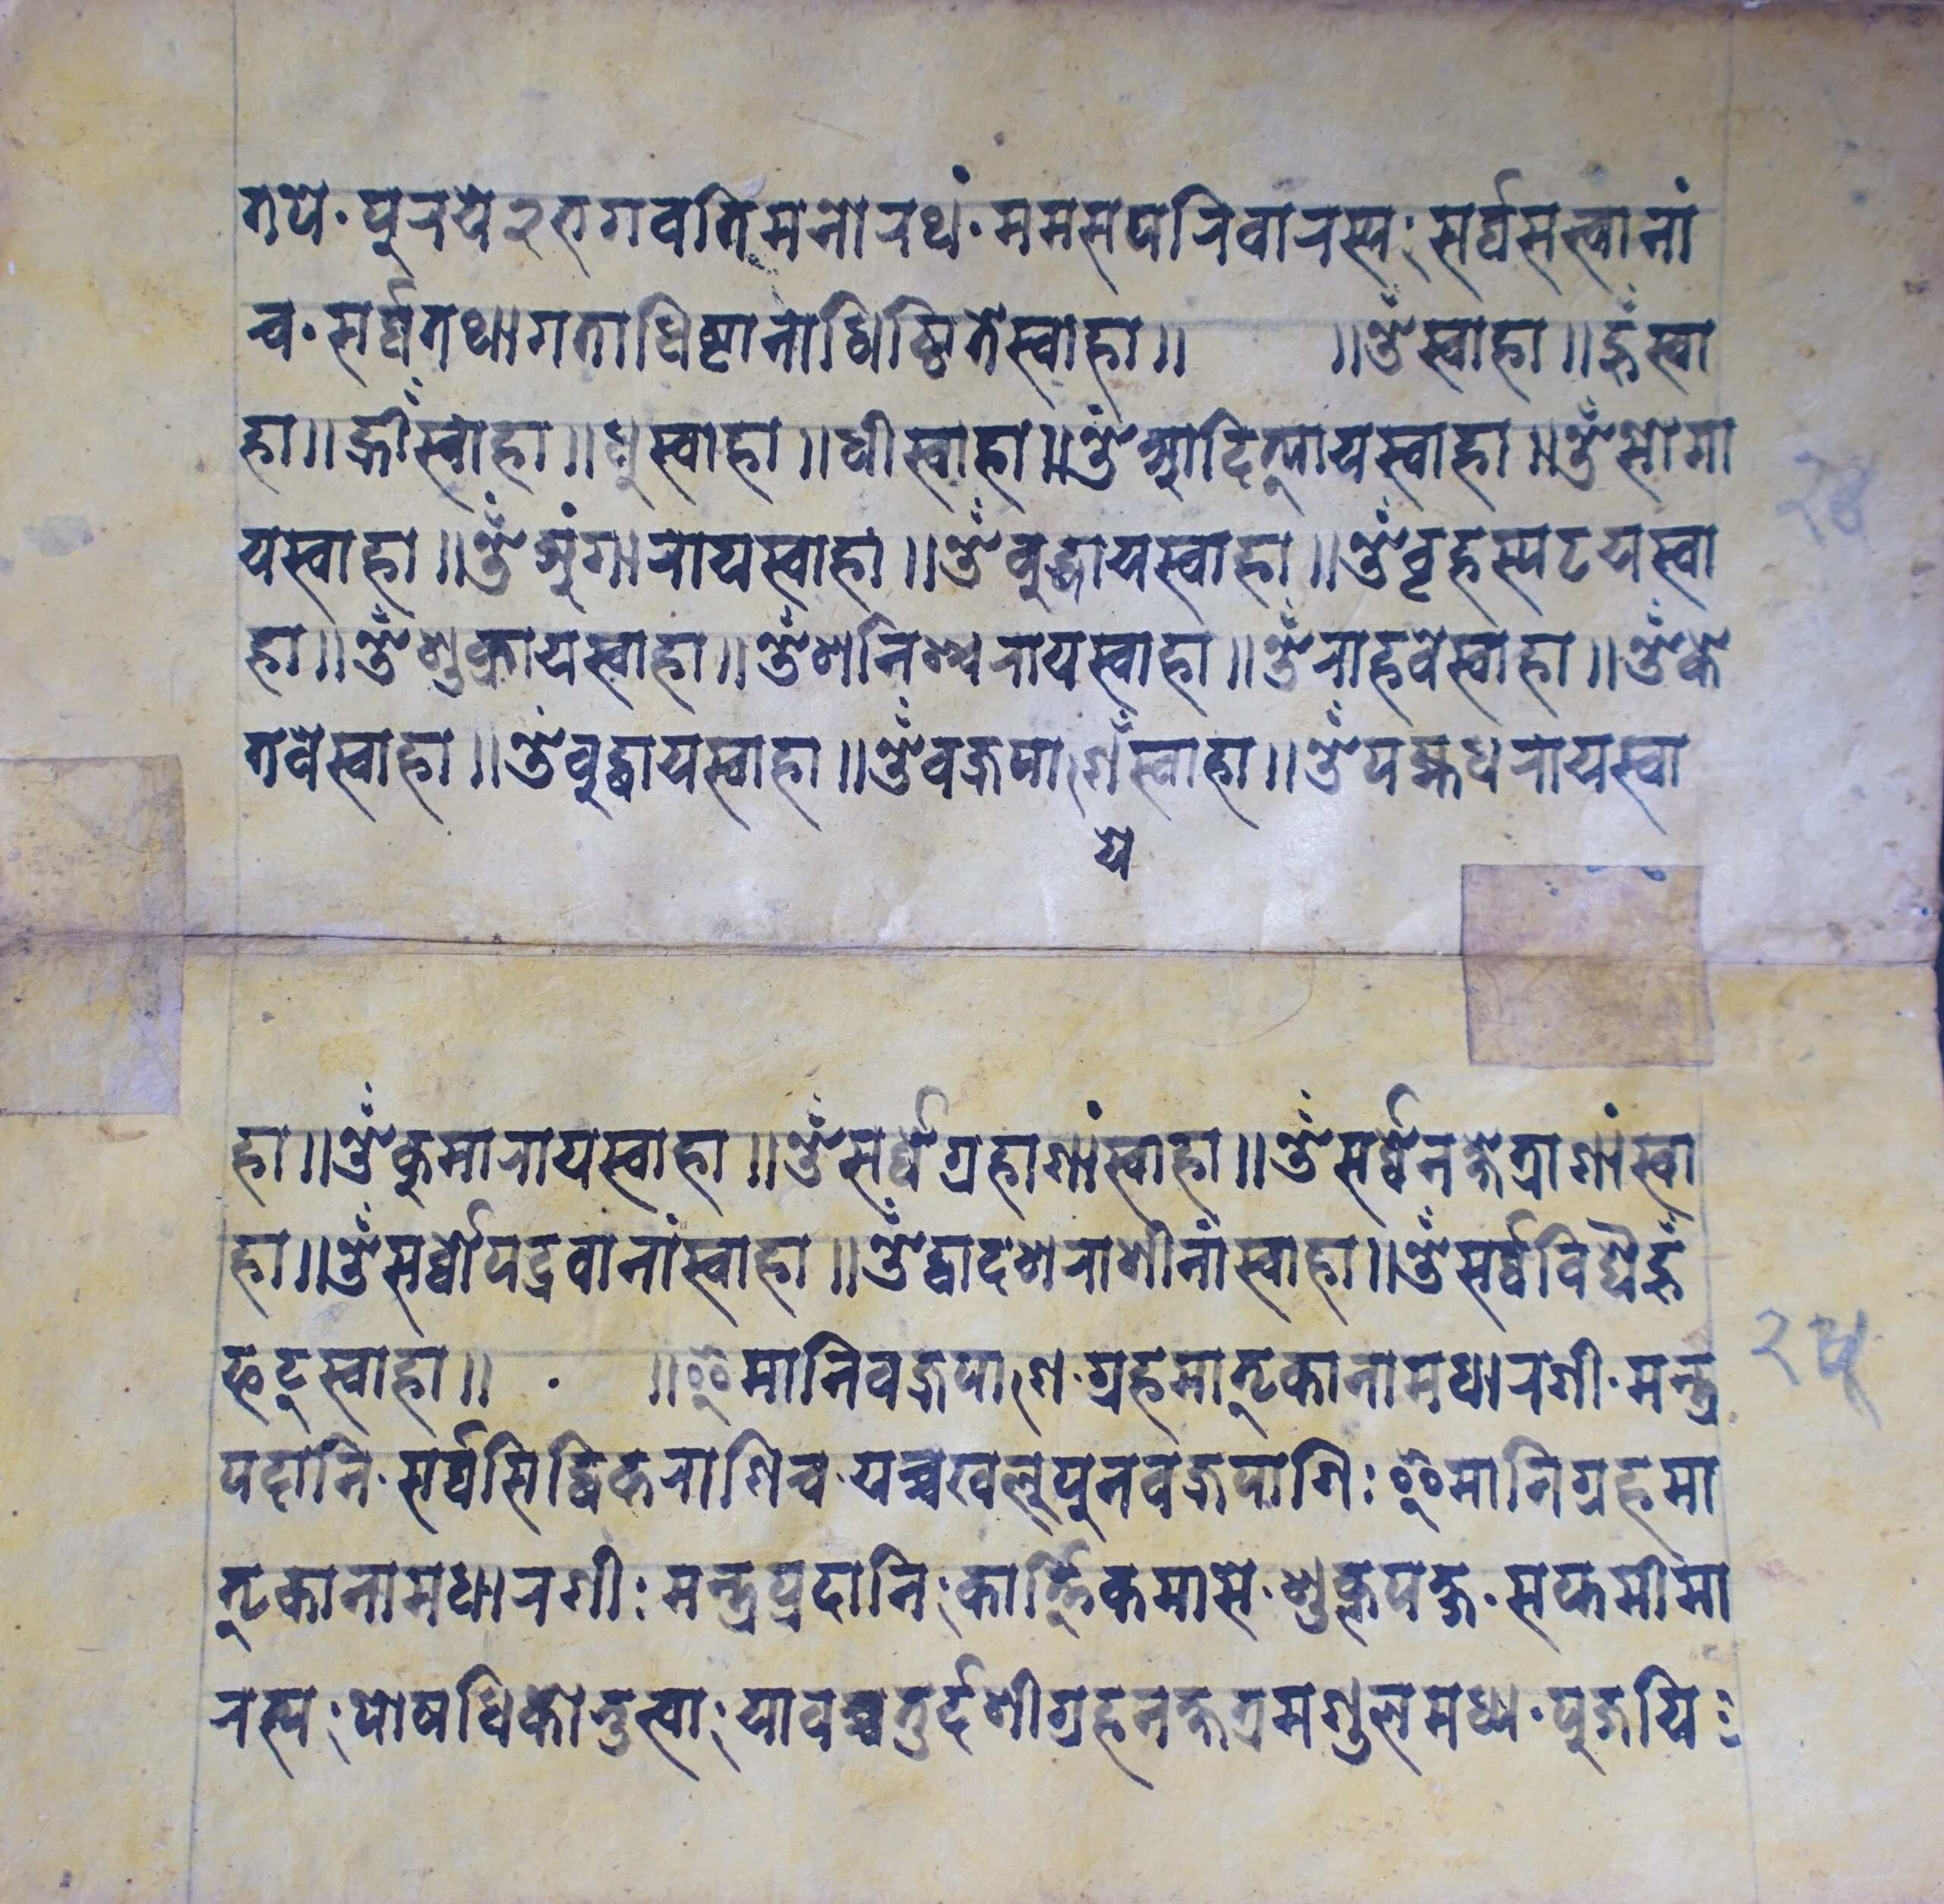 तपे·पुरये२भगवतिमनोरथं·ममसपरिवारस्य:सर्व्वसत्त्वानां
च·सर्व्वतथागताधिष्टानाधिष्ठितेस्वाहा॥ ॥ॐस्वाहा॥हूँस्वा
हा॥ह्रीँस्वाहा॥धुस्वाहा॥धीस्वाहा॥ॐआदित्यायस्वाहा॥ॐसोमा
यस्वाहा॥ॐअंगारायस्वाहा॥ॐबुद्धायस्वाहा॥ॐवृहस्पटयस्वा
हा॥ॐशुक्रायस्वाहा॥ॐशनिश्चरायस्वाहा॥ॐराहवेस्वाहा॥ॐके
तवेस्वाहा॥ॐबुद्धायस्वाहा॥ॐवज्रपाणँस्वाहा॥ॐपद्मधरायस्वा
ये
हा॥ॐकुमारायस्वाहा॥ॐसर्व्वेग्रहाणांस्वाहा॥ॐसर्व्वेनक्षेत्राणांस्वा
हा॥ॐसर्व्वोपद्रवानांस्वाहा॥ॐद्वादशराशीनांस्वाहा॥ॐसर्व्वविद्यैहूँ
फट्स्वाहा॥ · ॥इमानिवज्रपाण·ग्रहमातृकानामधारणी·मन्त्र
पदानि·सर्व्वसिद्धिकराणिच·यच्चखलूपुनवज्रपाणि:इमानिग्रहमा
तृकानामधारणी:मन्त्रप्रदानि:कार्त्तिकमासे·शुक्लपक्ष·सप्तमीमा
रस्य:पोषधिकोनुत्वा:यावच्चतुर्दशीग्रहनक्षत्रमण्डुलमध्य·पुजयि:
२४
२५